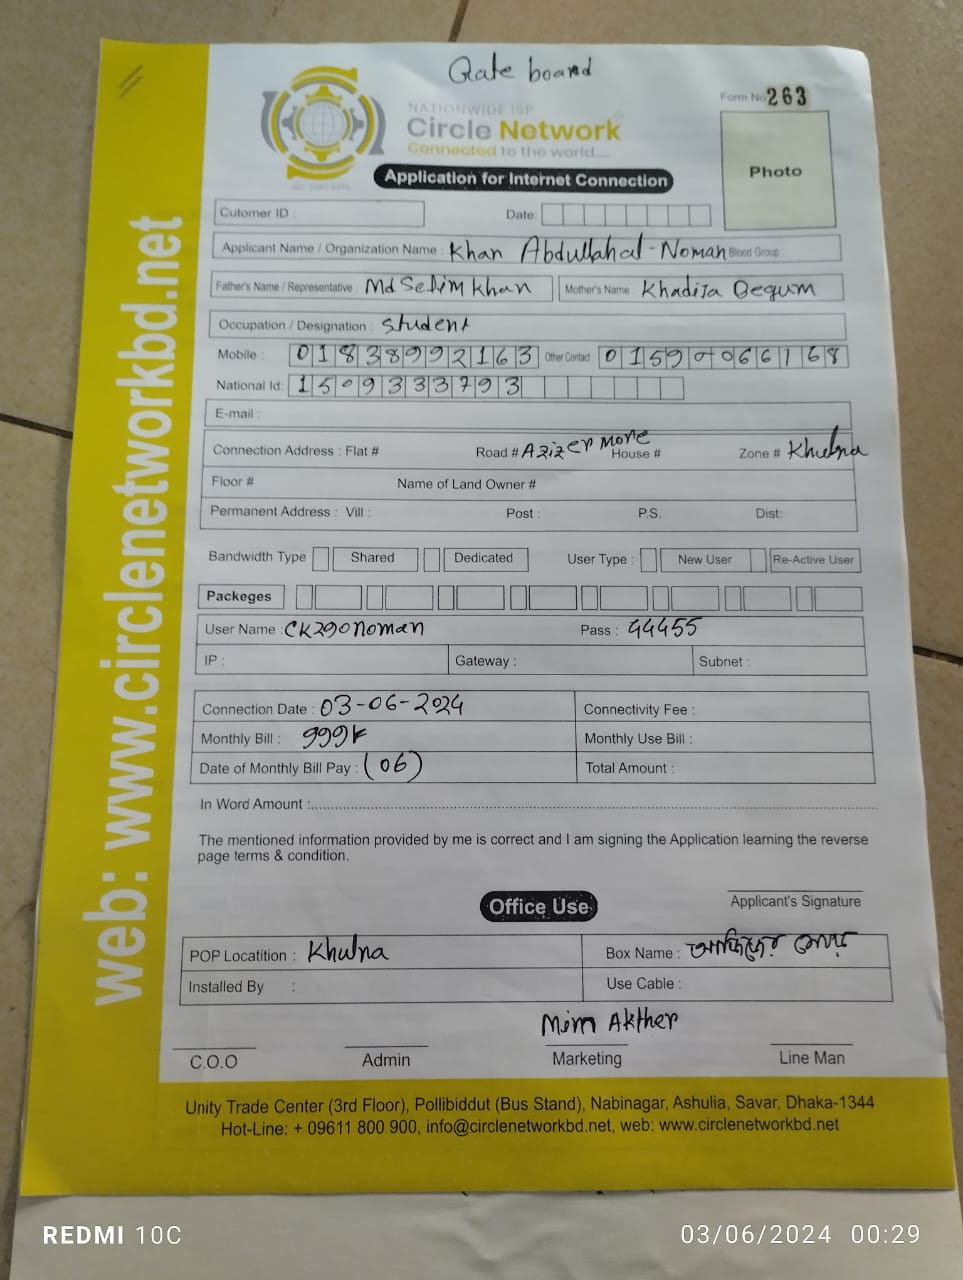 Rate board
Form No 263
NATIONWIDE ISP
Circle Network
Connected to the world....
Photo
Application for Internet Connection
Cutomer ID :
Date:
Applicant Name / Organization Name : Khan Abdullahal-Noman Blood Group:
Father's Name / Representative : Md Selim Khan Mother's Name : Khadija Begum
Occupation / Designation : Student
Mobile : 01838992163 Other Contact : 01590066168
National Id: 1509333793
E-mail :
Connection Address : Flat # Road # Azizer more House # Zone # Khulna
Floor # Name of Land Owner #
Permanent Address : Vill : Post : P.S. Dist:
Bandwidth Type Shared Dedicated User Type : New User Re-Active User
Packeges
User Name : CK290noman Pass : 44455
IP : Gateway : Subnet :
Connection Date : 03-06-2024 Connectivity Fee :
Monthly Bill : 999৳ Monthly Use Bill :
Date of Monthly Bill Pay : (06) Total Amount :
In Word Amount :
The mentioned information provided by me is correct and I am signing the Application learning the reverse
page terms & condition.
Office Use
Applicant's Signature
POP Locatition : Khulna Box Name : আজিজের মোড়
Installed By : Use Cable :
Mim Akther
C.O.O Admin Marketing Line Man
Unity Trade Center (3rd Floor), Pollibiddut (Bus Stand), Nabinagar, Ashulia, Savar, Dhaka-1344
Hot-Line: + 09611 800 900, info@circlenetworkbd.net, web: www.circlenetworkbd.net
web: www.circlenetworkbd.net
REDMI 10C
03/06/2024 00:29